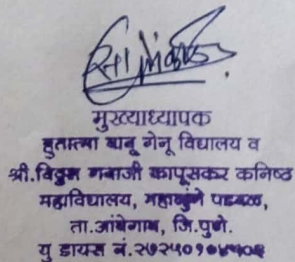 मुख्याध्यापक
हुतात्मा बाबू गेनू विद्यालय व
श्री.विठ्ठल गबाजी कापूसकर कनिष्ठ
महाविद्यालय, महाळुंगे पडवळ,
ता.आंबेगाव, जि.पुणे.
यु डायस नं.